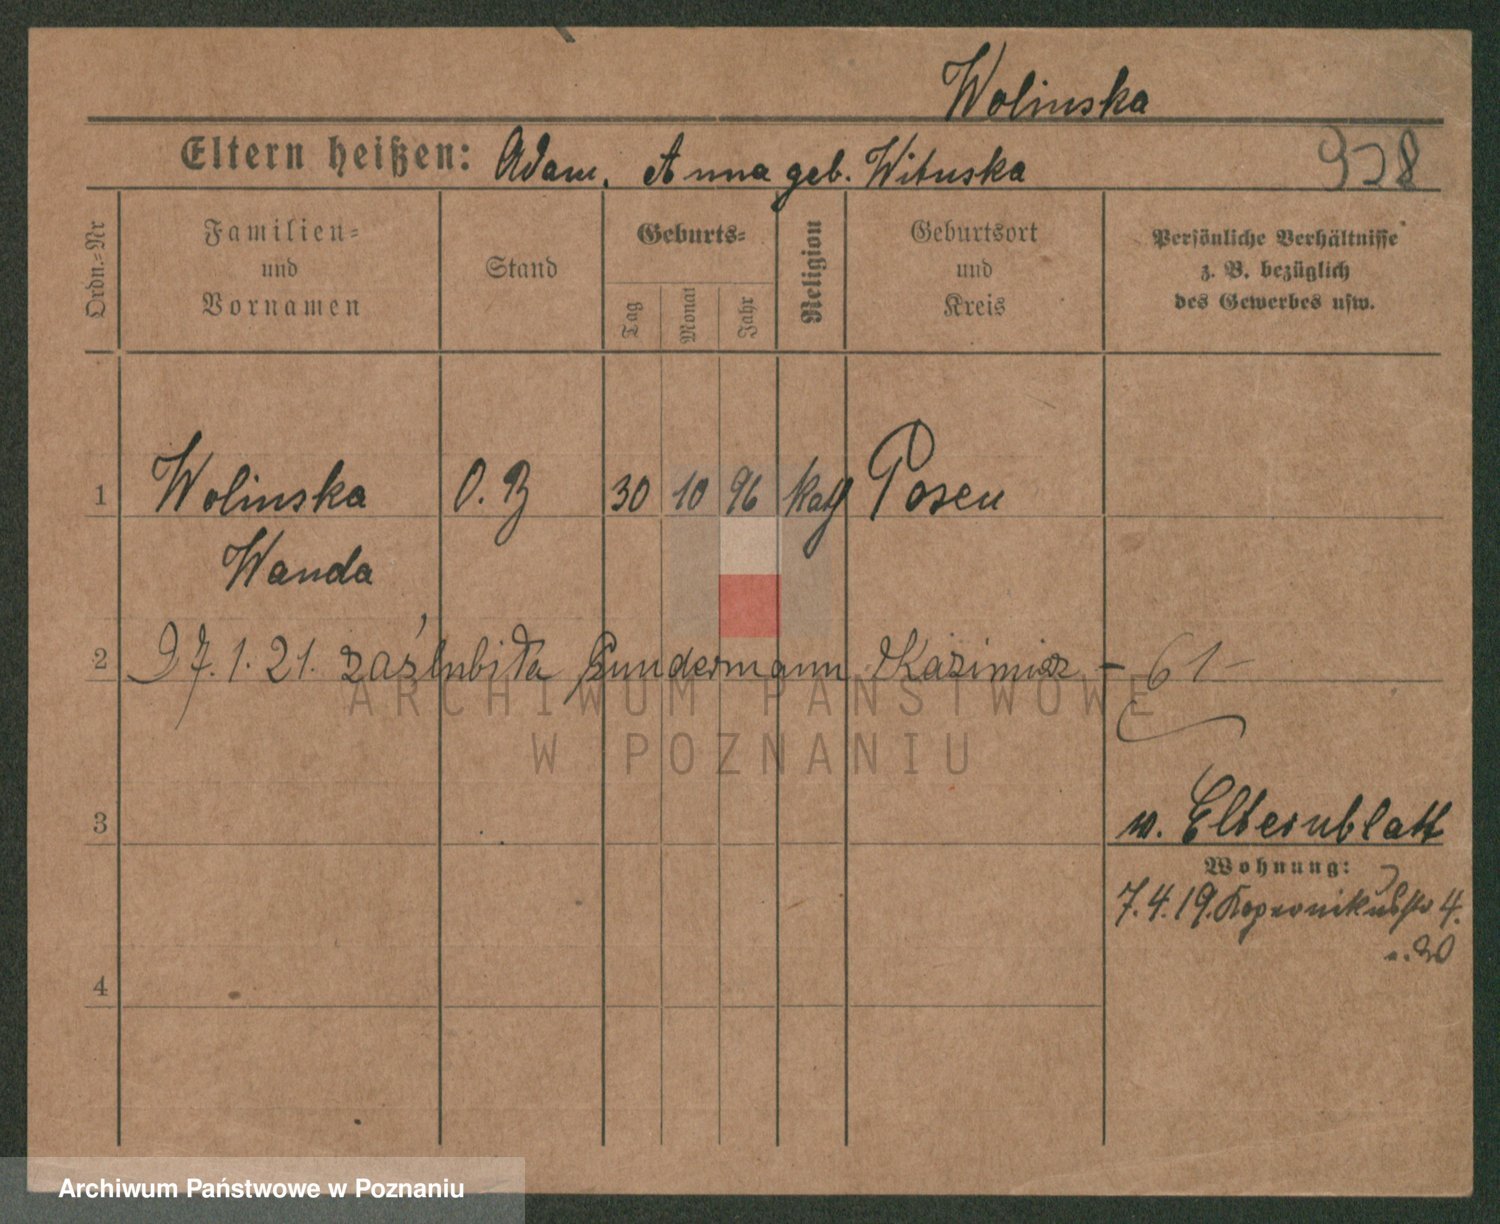 Wolinska
Eltern heißen: Adam, Anna geb. Wituska
938
Ordn.-Nr
Familien-
und
Vornamen
Stand
Geburts-
Tag
Monat
Jahr
Religion
Geburtsort
und
Kreis
Persönliche Verhältnisse
z. B. bezüglich
des Gewerbes usw.
1 Wolinska O. B 30 10 96 kath Posen
Wanda
2 27.1.21. zaślubiła Kazimierz – 61 –
ARCHIWUM PAŃSTWOWE
W POZNANIU
3
w. Elternblatt
Wohnung:
7.4.19. Kopernikusstr 4.
4
Archiwum Państwowe w Poznaniu